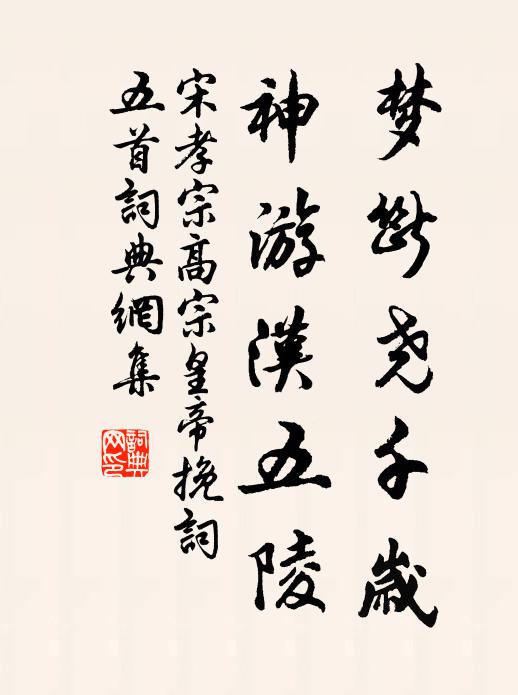 梦断尧千岁
神游汉五陵
宋孝宗高宗皇帝挽词
五首詞典網集
詞典网印